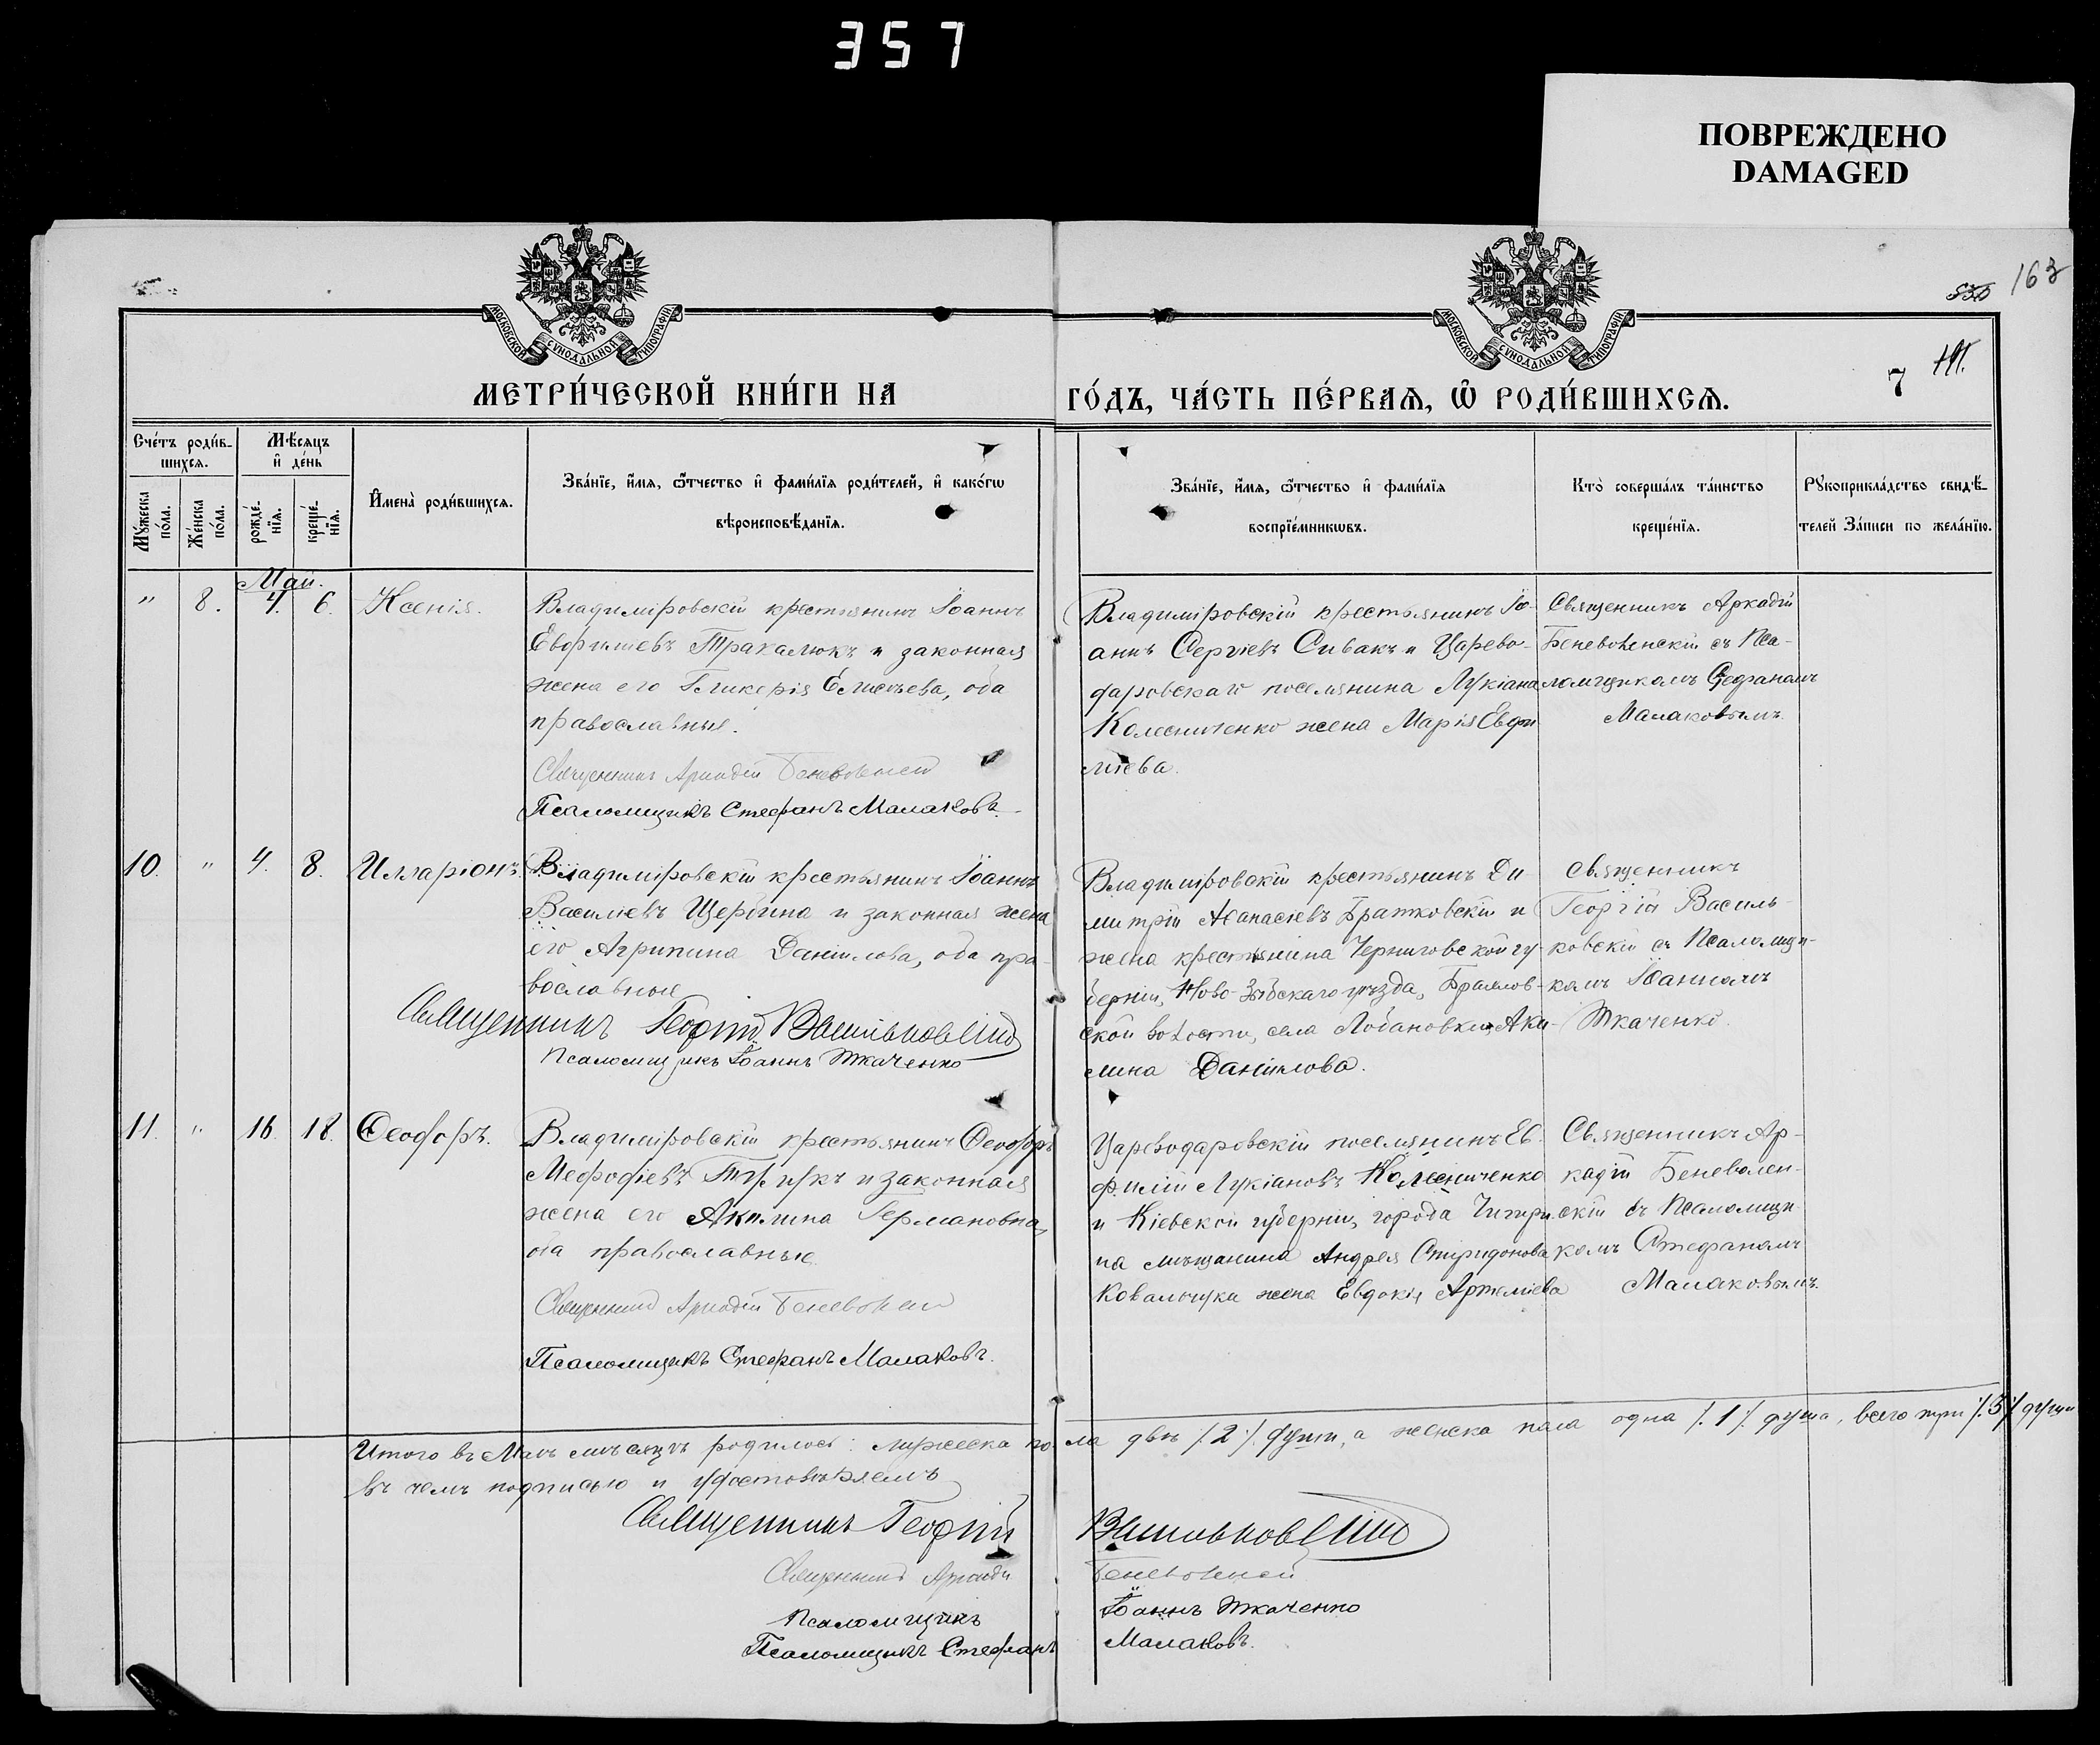 357
ПОВРЕЖДЕНО
DAMAGED
163
530
7
МОСКОВСКОЙ СУНОДАЛЬНОЙ ТИПОГРАФІИ
МОСКОВСКОЙ СУНОДАЛЬНОЙ ТИПОГРАФІИ
МЕТРИ́ЧЕСКОЙ КНИ́ГИ НА
ГО́ДЪ, ЧА́СТЬ ПЕ́РВАѦ, Ѡ҆ РОДИ́ВШИХСѦ.
Сче́тъ роди́в-
шихсѧ.
Мꙋ́жеска
по́ла.
Же́нска
по́ла.
Мѣ́сѧцъ
и҆ де́нь
рожде́-
нїѧ.
креще́-
нїѧ.
И҆мена̀ роди́вшихсѧ.
Зва́нїе, и҆́мѧ, ѻ҆́тчество и҆ фами́лїѧ роди́телей, и҆ како́гѡ
вѣроисповѣ́данїѧ.
Зва́нїе, и҆́мѧ, ѻ҆́тчество и҆ фами́лїѧ
воспрїе́мникѡвъ.
Кто̀ соверша́лъ та́инство
креще́нїѧ.
Рꙋкоприкла́дство свидѣ́-
телей За́писи по жела́нїю.
Май.
" 8. 4. 6. Ксенія.
Владиміровскій крестьянинъ Іоаннъ
Евфиміевъ Тракалюкъ и законная
жена его Гликерія Елисѣева, оба
православные.
Священникъ Аркадій Беневоленскій
Псаломщикъ Стефанъ Малаковъ.
Владиміровскій крестьянинъ Іо-
аннъ Сергіевъ Сивакъ и Царево-
даровскаго поселянина Лукіана
Колесниченко жена Марія Евфи
міева.
Священникъ Аркадій
Беневоленскій съ Пса-
ломщикомъ Стефаномъ
Малаковымъ.
10. " 4. 8. Илларіонъ.
Владиміровскій крестьянинъ Іоаннъ
Василіевъ Щербина и законная жена
его Агрипина Даніилова, оба пра-
вославные
Священникъ Георгій Васильковскій
Псаломщикъ Іоаннъ Ткаченко
Владиміровскій крестьянинъ Ди-
митрій Аѳанасіевъ Братковскій и
жена крестьянина Черниговской гу-
берніи, Ново-Зыбскаго уѣзда,
ской волости, села Лобановки, Аки-
лина Даніилова.
Священникъ
Георгій Василь-
ковскій съ Псаломщи-
комъ Іоанномъ
Ткаченко.
11. " 16. 18. Ѳеодоръ.
Владиміровскій крестьянинъ Ѳеодоръ
Меѳодіевъ и законная
жена его Акилина Германовна,
оба православные.
Священникъ Аркадій Беневоленскій
Псаломщикъ Стефанъ Малаковъ.
Цареводаровскій поселянинъ Ев-
филій Лукіановъ Колесниченко
и Кіевской губерніи, города Чигири
на мѣщанина Андрея Спиридонова
Ковальчука жена Евдокія Артеміева
Священникъ Ар-
кадій Беневолен-
скій съ Псаломщи
комъ Стефаномъ
Малаковымъ.
Итого въ Маѣ мѣсяцѣ родилось: мужеска по-ла двѣ /.2./ души, а женска пола одна /.1./ душа, всего три /.3./ души
въ чемъ подписью и удостовѣряемъ
Священникъ Георгій Васильковскій
Священникъ Аркадій Беневоленскій
Псаломщикъ Іоаннъ Ткаченко
Псаломщикъ Стефанъ Малаковъ.